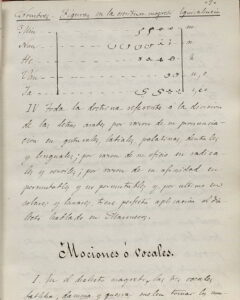 Nombres. Figuras en la escritura magreb. Equivalencia
Nun n
He h
Ya
IV Toda la doctrina referente a la division
de las letras árabes por razon de su pronuncia-
cion en guturales, labiales, palatinas, dentales
y linguales; por razon de su oficio en radica-
les y serviles; por razon de su afinidad en
permutables y no permutables y por ultimo en
solares y lunares tiene perfecta aplicacion al dia-
lecto hablado en Marruecos.
Mociones ó vocales.
I. En el dialecto magreb, las tres vocales
fatha, damma y quesra suelen tomar los so-